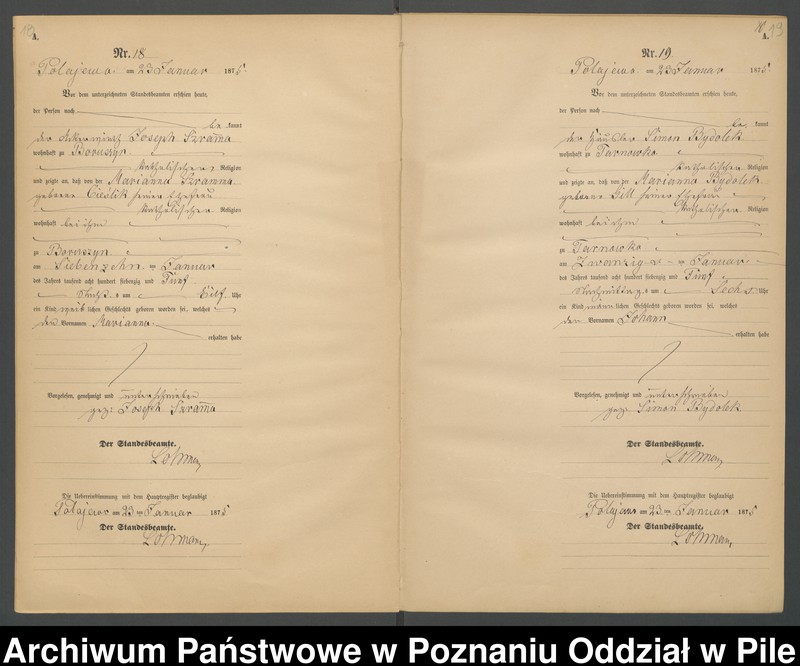 A.
Nr. 18
Polajewo am 23 Januar 1875.
Vor dem unterzeichneten Standesbeamten erschien heute,
der Person nach
be kannt
der Ackerwirth Joseph Szrama
wohnhaft zu Boruszyn
katholischer Religion
und zeigte an, daß von der Marianna Szrama
geborene seiner Ehefrau
katholischer Religion
wohnhaft bei ihm
zu Boruszyn
am Siebenzehn ten Januar
des Jahres tausend acht hundert siebenzig und Fünf
Nachts um Eilf Uhr
ein Kind weiblichen Geschlechts geboren worden sei, welches
den Vornamen Marianna
erhalten habe
Vorgelesen, genehmigt und unterschrieben
gez: Joseph Szrama
Der Standesbeamte.
Lohman
Die Uebereinstimmung mit dem Hauptregister beglaubigt
Polajewo am 23 ten Januar 1875
Der Standesbeamte.
Lohman
13
A.
Nr. 19
Polajewo am 23 Januar 1875.
Vor dem unterzeichneten Standesbeamten erschien heute,
der Person nach
be kannt
der Häusler Simon Rydolek
wohnhaft zu Tarnowko
katholischer Religion
und zeigte an, daß von der Marianna Rydolek
geborene seiner Ehefrau
katholischer Religion
wohnhaft bei ihm
zu Tarnowko
am Zwanzigs ten Januar
des Jahres tausend acht hundert siebenzig und Fünf
Nachmittags um Sechs Uhr
ein Kind männlichen Geschlechts geboren worden sei, welches
den Vornamen Johann
erhalten habe
Vorgelesen, genehmigt und unterschrieben
gez: Simon Rydolek
Der Standesbeamte.
Lohman
Die Uebereinstimmung mit dem Hauptregister beglaubigt
Polajewo am 23 ten Januar 1875
Der Standesbeamte.
Lohman
Archiwum Państwowe w Poznaniu Oddział w Pile